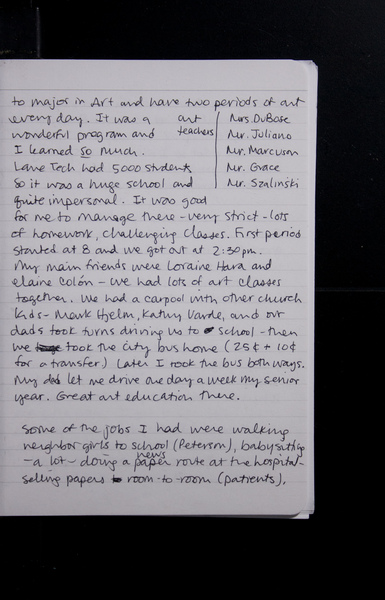 to major in Art and have two periods of art
every day. It was a
wonderful program and
I learned so much.
Lane Tech had 5000 students
so it was a huge school and
quite impersonal. It was good
art
teachers
Mrs. DuBose
Mr. Juliano
Mr. Marcuson
Mr. Grace
Mr. Szalinski
for me to manage there - very strict - lots
of homework, challenging classes. First period
started at 8 and we got out at 2:30pm.
My main friends were Loraine Hara and
Elaine Colón - we had lots of art classes
together. We had a carpool with other church
kids - Mark Hjelm, Kathy Varde, and our
dads took turns driving us to school - then
we took the city bus home (25¢ + 10¢
for a transfer.) Later I took the bus both ways.
My dad let me drive one day a week my senior
year. Great art education there.
Some of the jobs I had were walking
neighbor girls to school (Peterson), babysitting
- a lot - doing a news paper route at the hospital -
selling papers room-to-room (patients).